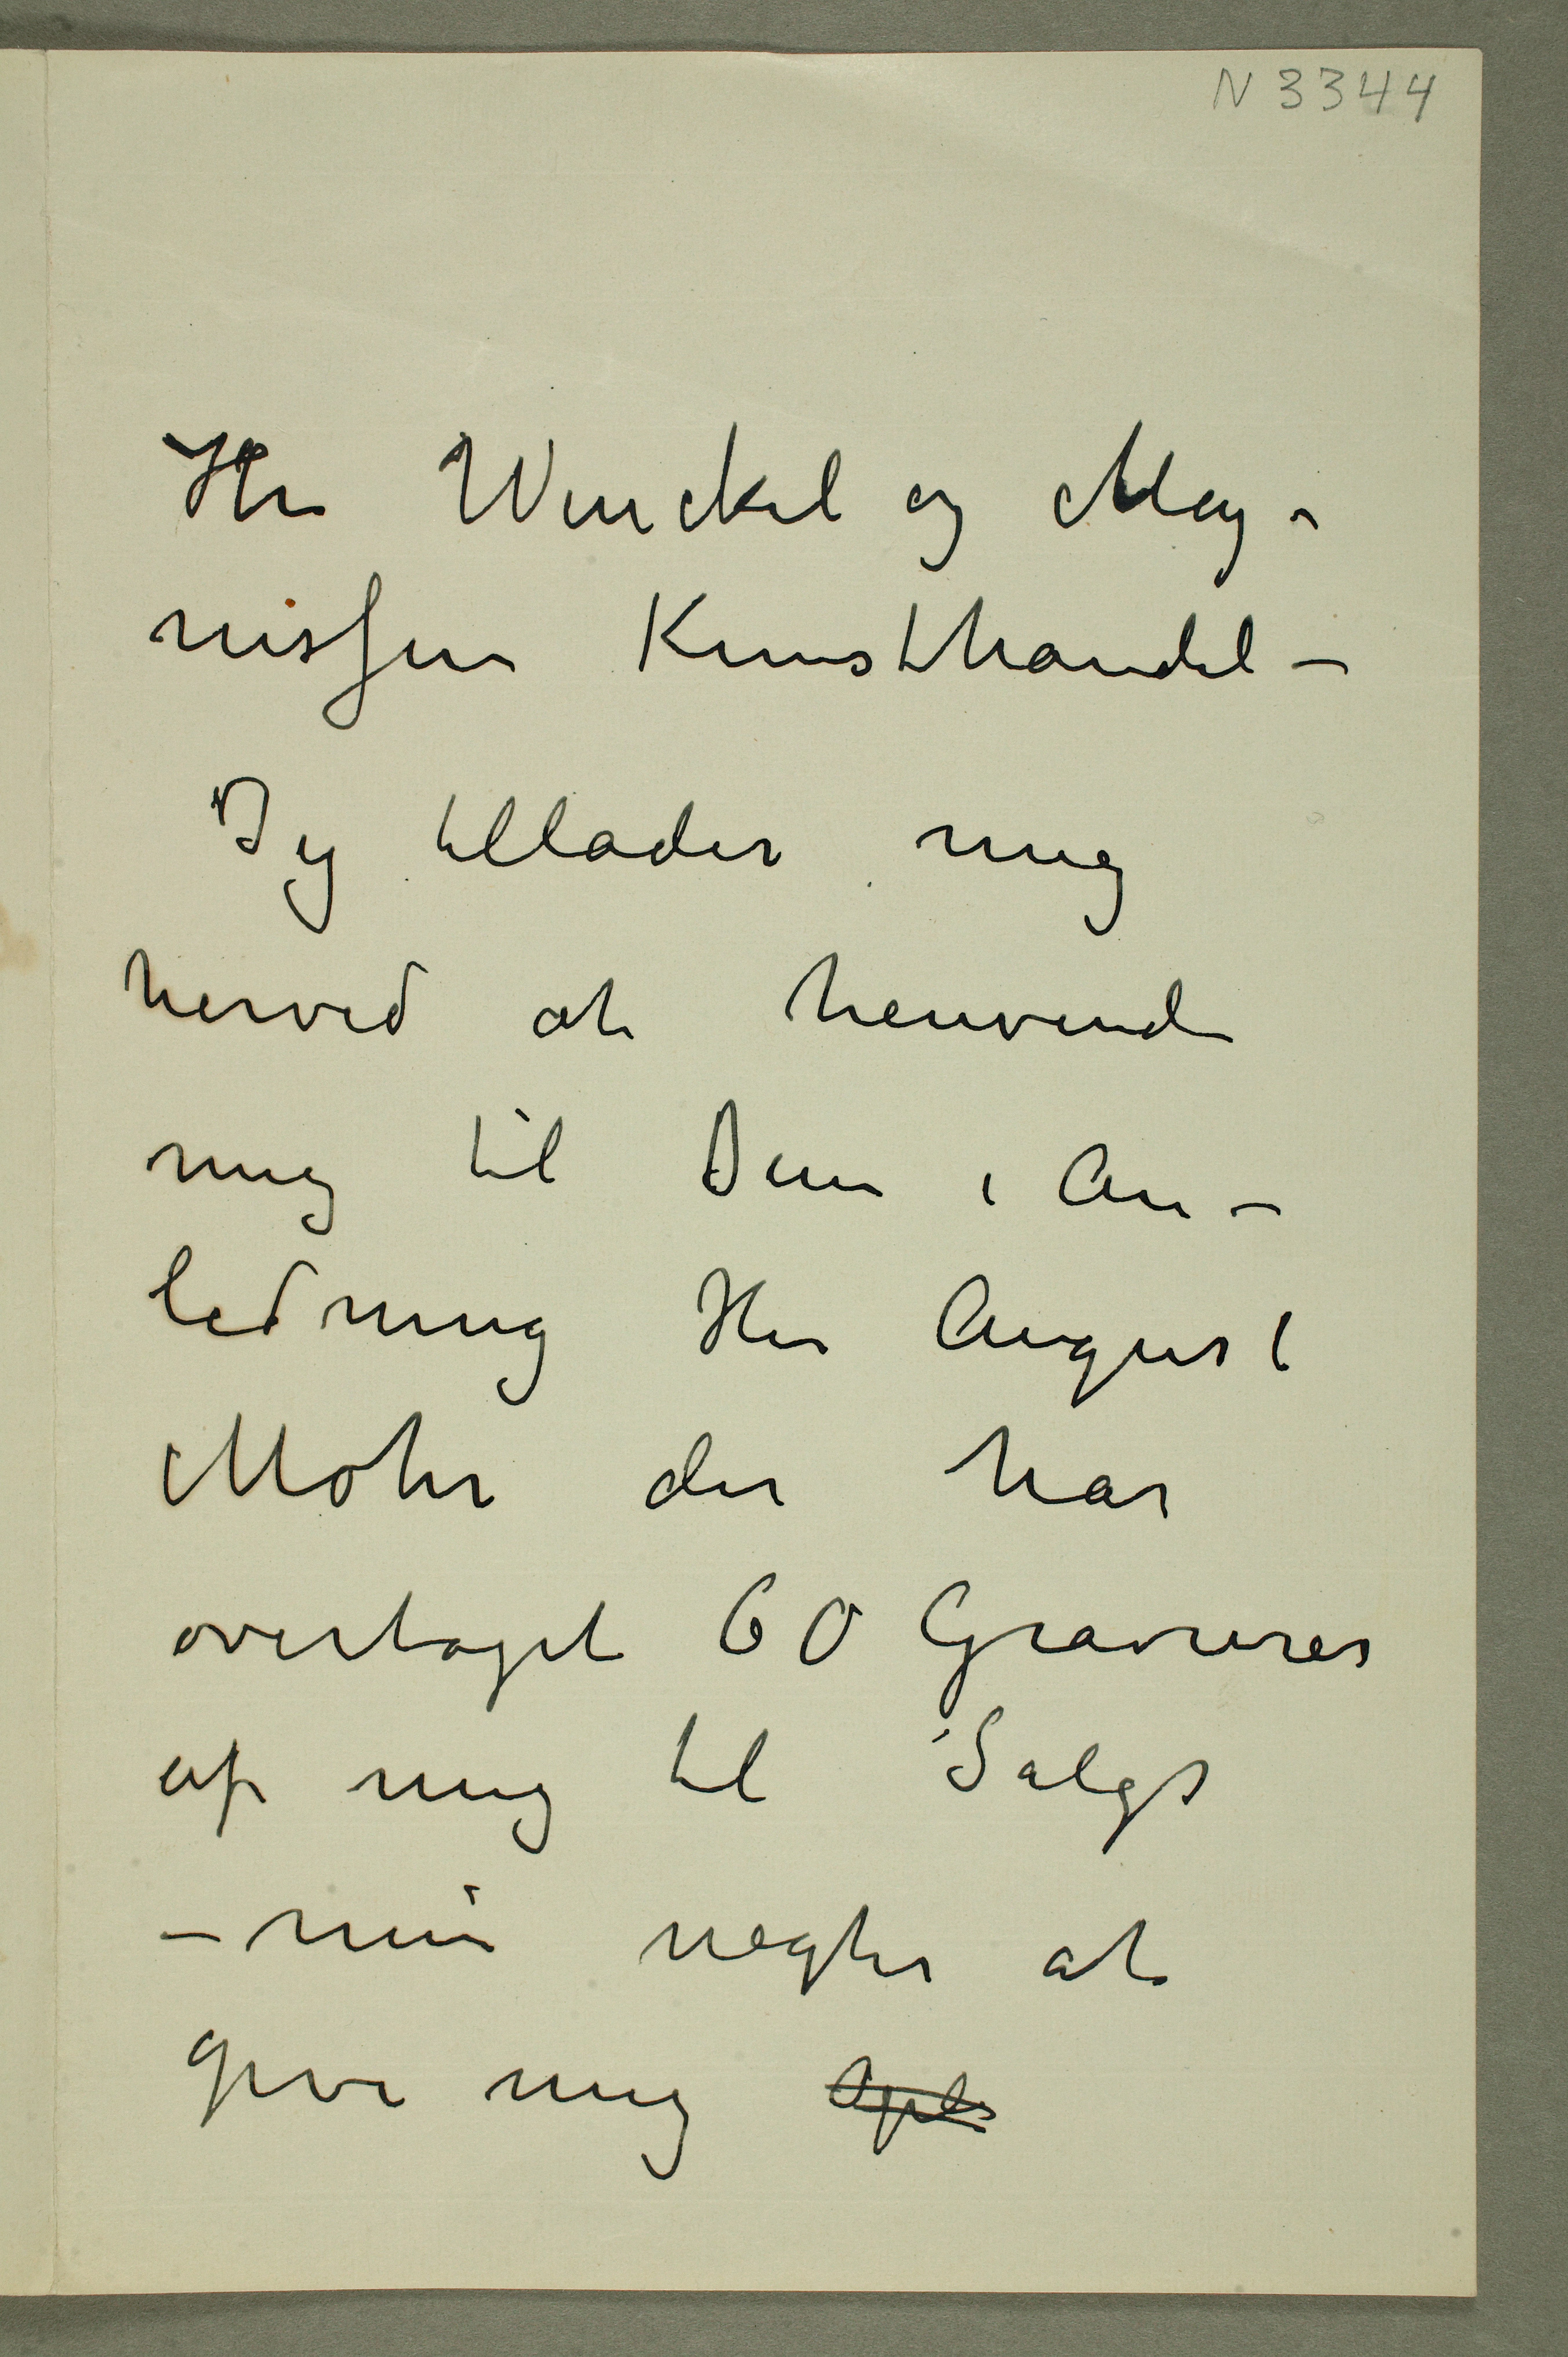 N 3344
Hr Winckel og Mag-
nissen Kunsthandel –
Jeg tillader mig
herved at henvende
mig til Dem i An-
ledning Herr August
Mohr der har
overtaget 60 Gravures
af mig til Salgs
– men negter at
give mig